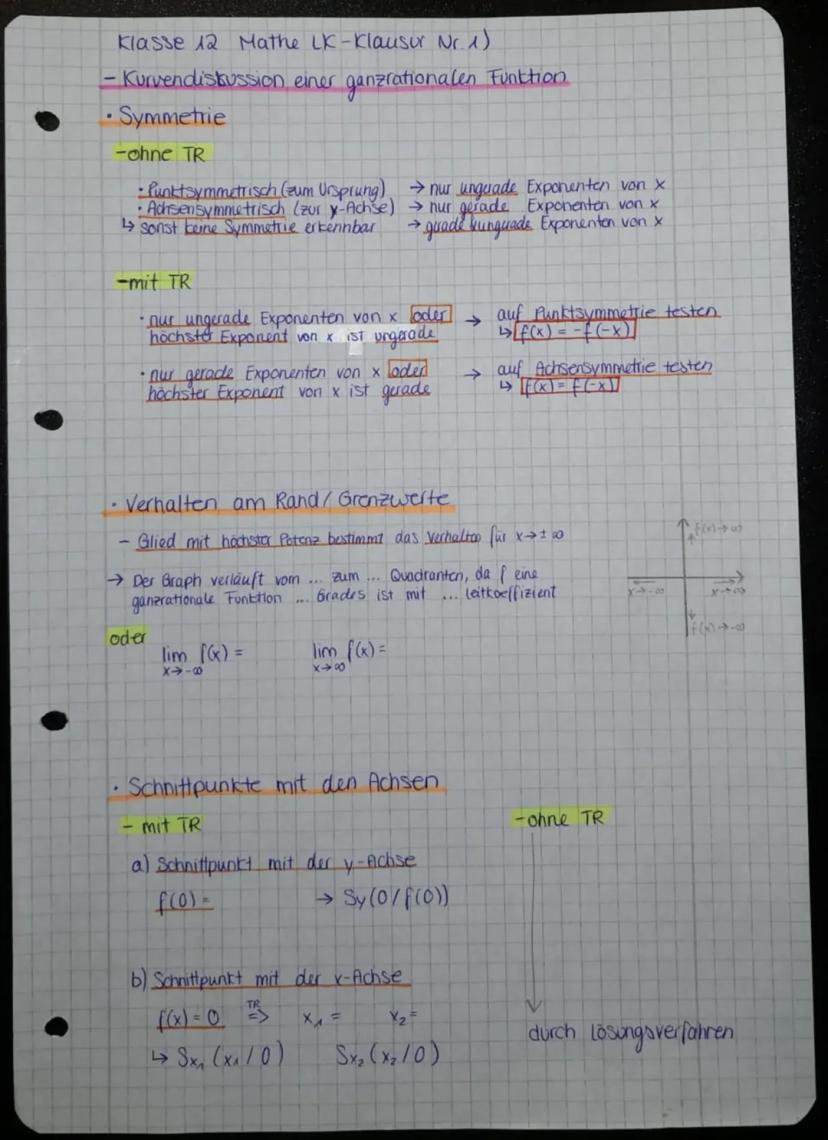 Klasse 12 Mathe LK-Klausur Nr. 1)
- Kurvendiskussion einer ganzrationalen Funktion
• Symmetrie
-ohne TR
• Punktsymmetrisch (zum Ursprung) → nur ungerade Exponenten von x
• Achsensymmetrisch (zur y-Achse) → nur gerade Exponenten von x
↳ sonst keine Symmetrie erkennbar → gerade & ungerade Exponenten von x
-mit TR
• nur ungerade Exponenten von x oder → auf Punktsymmetrie testen
höchster Exponent von x ist ungerade ↳ f(x) = -f(-x)
• nur gerade Exponenten von x oder → auf Achsensymmetrie testen
höchster Exponent von x ist gerade ↳ f(x) = f(-x)
• Verhalten am Rand / Grenzwerte
- Glied mit höchster Potenz bestimmt das Verhalten für x→±∞
f(x)→∞
→ Der Graph verläuft vom ... zum ... Quadranten, da f eine
ganzrationale Funktion ... Grades ist mit ... Leitkoeffizient
x→-∞ x→∞
f(x)→-∞
oder
lim f(x) = lim f(x) =
x→-∞ x→∞
• Schnittpunkte mit den Achsen
- mit TR -ohne TR
a) Schnittpunkt mit der y-Achse
f(0) = → Sy(0/f(0))
b) Schnittpunkt mit der x-Achse
f(x) = 0 TR => x₁ = x₂ =
durch Lösungsverfahren
↳ Sx₁ (x₁/0) Sx₂ (x₂/0)